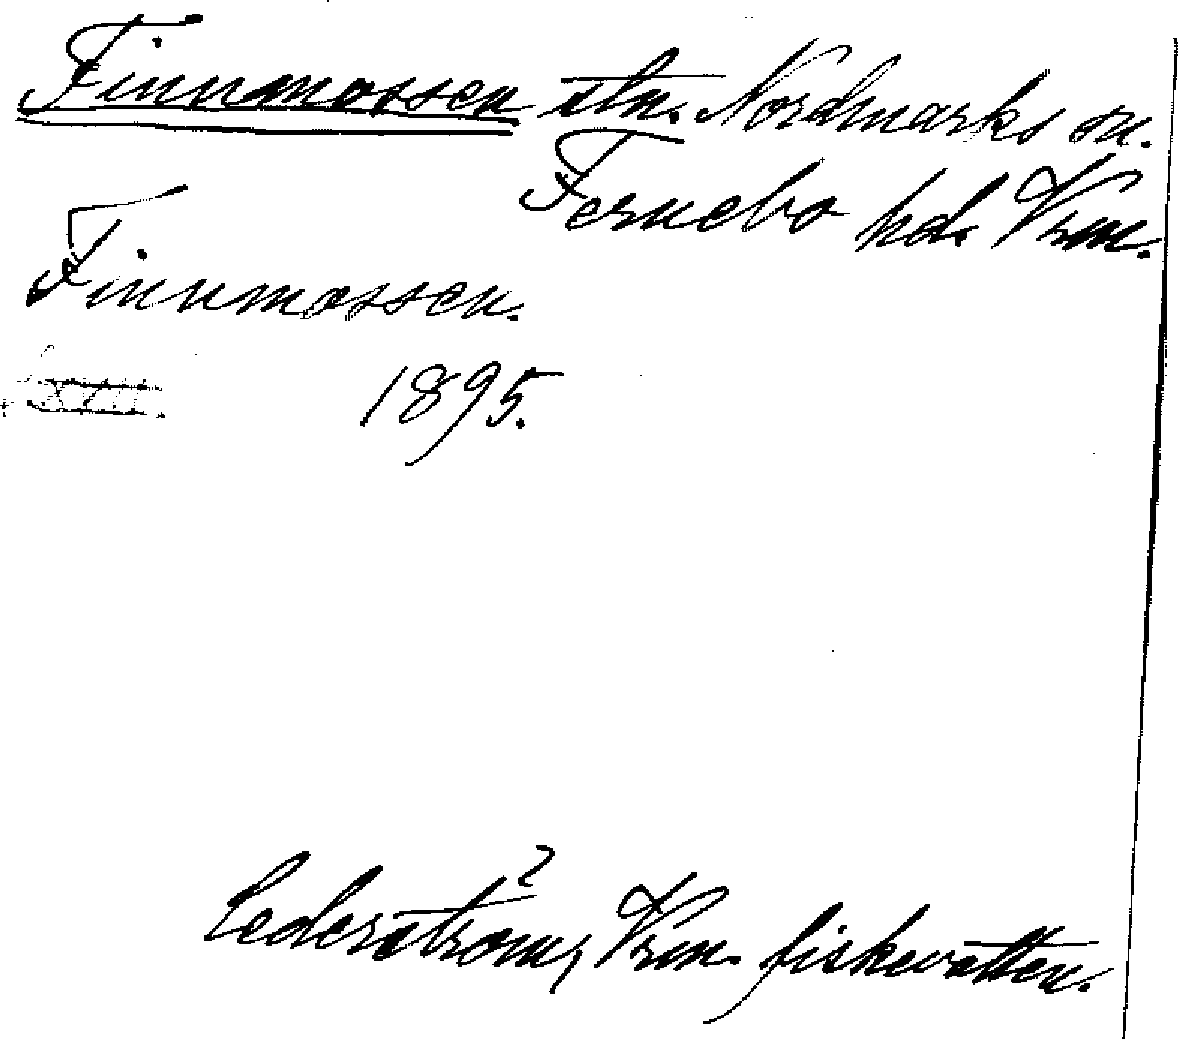 Finnmossen stn. Nordmarks sn.
Fernebo hd. Vrm.
Finnmossen.
1895.
Cederström, Vrm. fiskevatten.